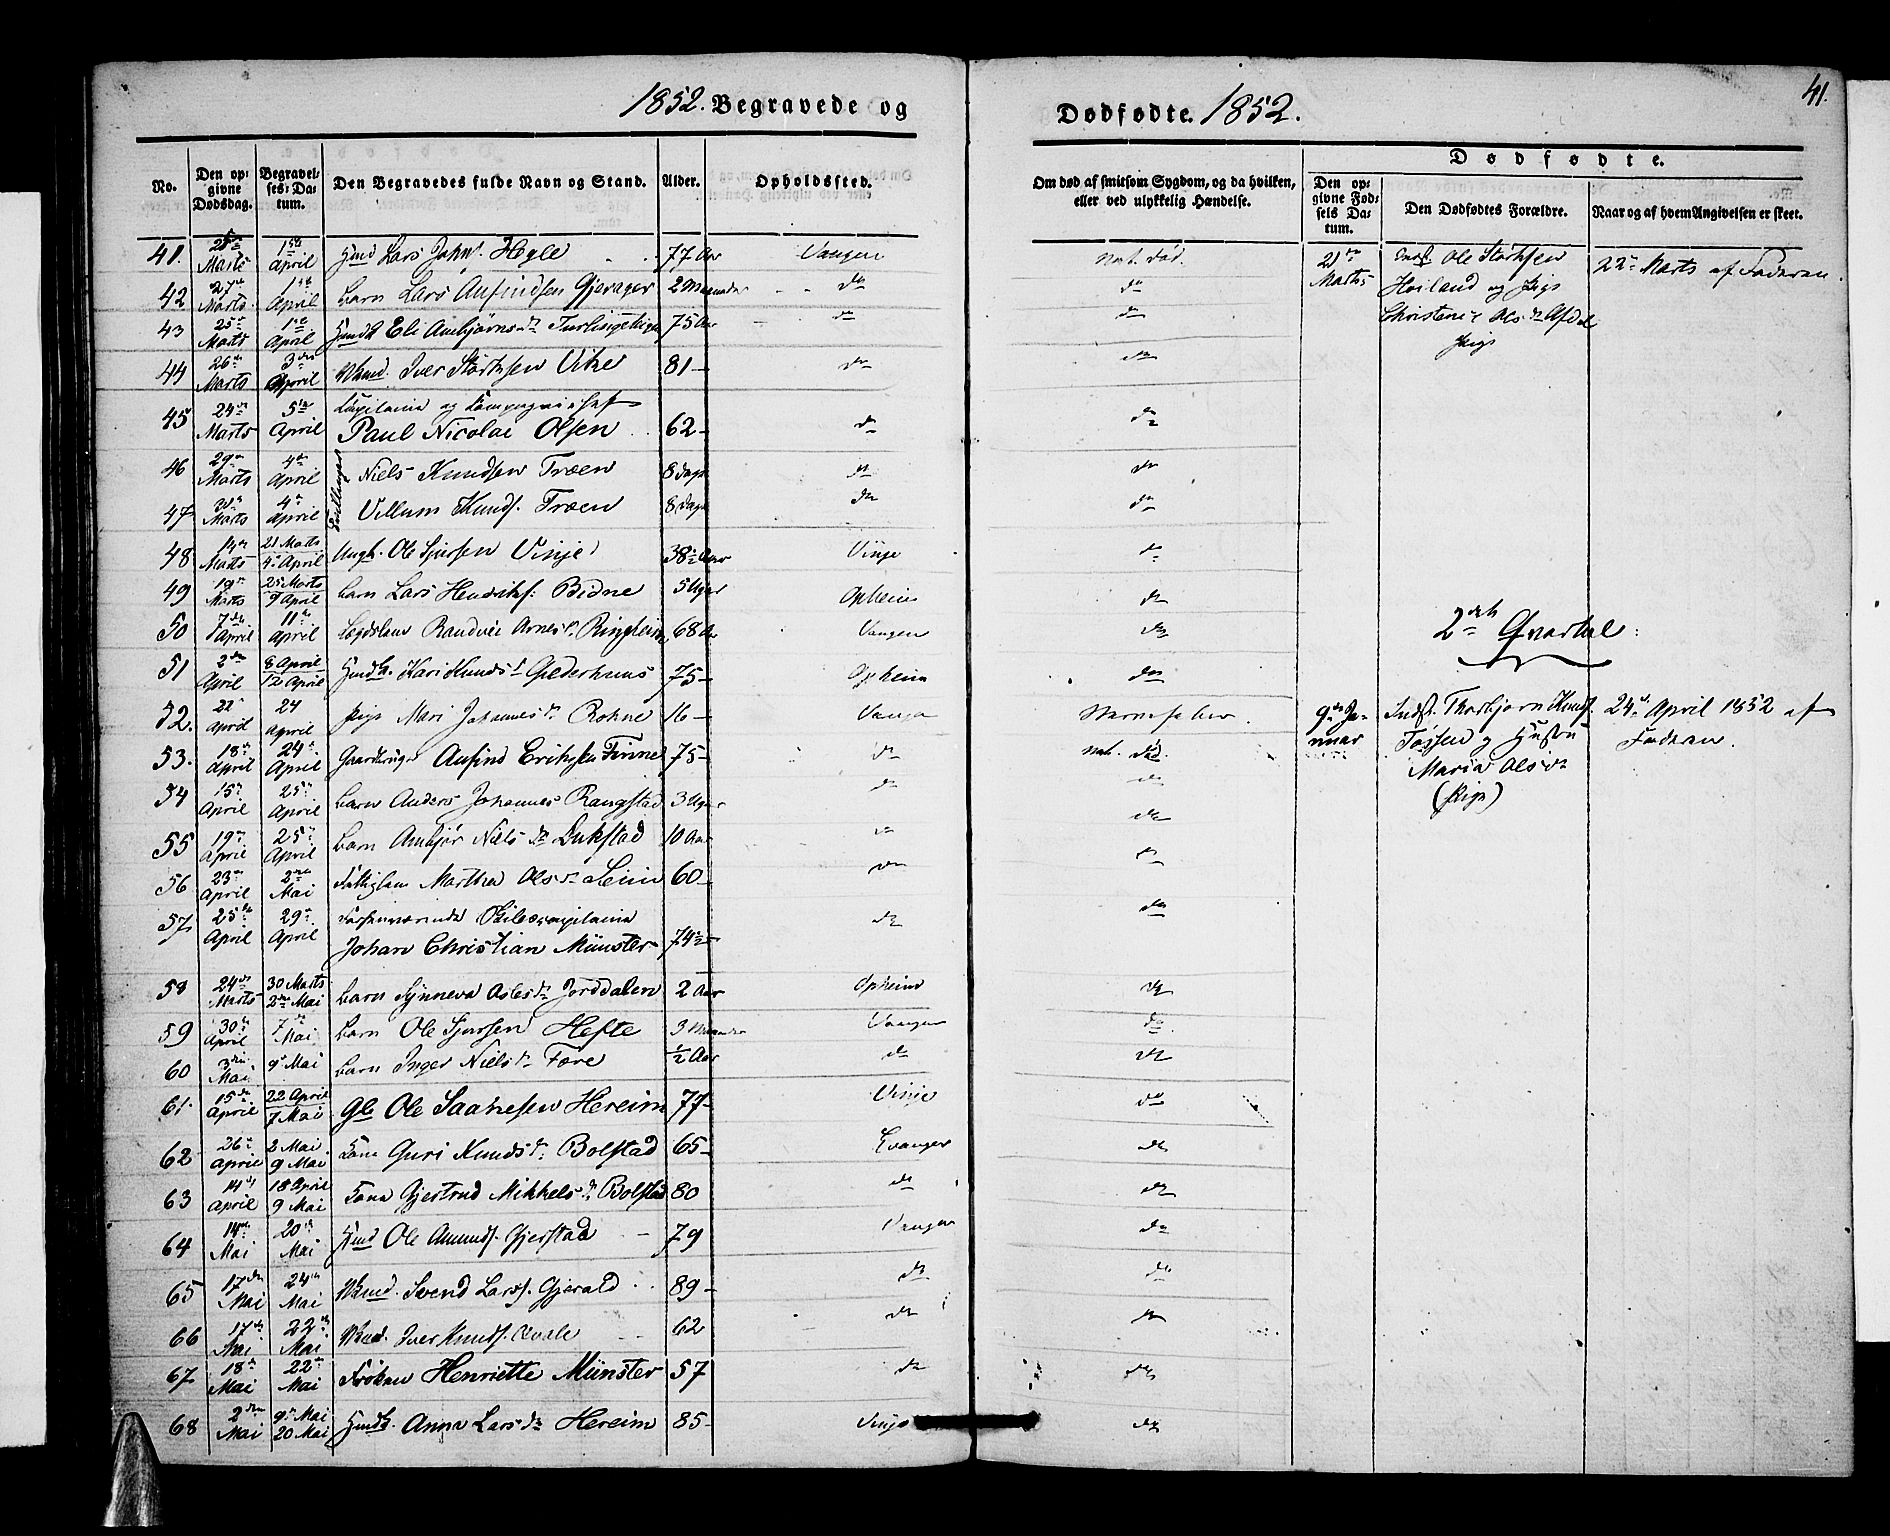 1852. Begravede og
Dødfødte. 1852.
41.
No.
Den opgivne Dødsdag.
Begravelses-Datum.
Den Begravedes fulde Navn og Stand.
Alder.
Opholdssted.
Om død af smitsom Sygdom, og da hvilken, eller ved ulykkelig Hændelse.
Dødfødte.
Den opgivne Fødsels Datum.
Den Dødfødtes Forældre.
Naar og af hvem Angivelsen er skeet.
41. Marts 1ste April Lars Johns. 77 Aar Vangen Nat. Død.
42 27de Marts 1ste April Barn Lars Anfindsen Gjerager 2 Maaneder do do
43 25de Marts 1ste April Eli Anbjørns dr 75 Aar do do
44 26de Marts 3die April Iver Størksen 81 – do do
45 24de Marts 5te April
Paul Nicolai Olsen 62 – do do
46 29de Marts 4de April Niels Knudsen Træen 8 Dage do do
Tvillinger
47 Marts 4de April Villum Knuds. Træen 8 Dage do do
48 14de Marts 21 Marts 4de April Ungk. Ole Sjursen Vinje 38½ Aar Vinje do
49 19de Marts 25 Marts 9 April Barn Lars Henriks. Bidne 5 Uger Opheim do
50 7de April 11te April Lægdslem Randvei Arnes dr Ringheim 68 Aar Vangen do
51 2den April 8 April 12 April Kari Knuds dr Gjelderhuus 75 – Opheim do
52. 22 April 24 April Pige Mari Johannes dr Rokne 16 – Vangen
53. 18de April 24de April Anfind Eriksen Finne 75 – do Nat. Død.
54 15de April 25de April Barn Anders Johannes. 3 Uger do do
55 19de April 25de April Barn Anbjør Niels dr Dukstad 10 Aar do do
56 23de April 2den Mai Fattiglem Martha Ols dr Seim 60 – do do
57 25de April 29de April Forhenværende
Johan Christian Münster 74½ do do
58 24de Marts 30 Marts 2den Mai Barn Synneva Asles dr Jorddalen 2 Aar Opheim do
59 30te April 7de Mai Barn Ole Sjursen Hefte 3 Maaneder Vangen do
60 3die Mai 9de Mai Barn Inger Niels dr Føre ½ Aar do do
61. 15de April 22 April 7 Mai Gl Ole Hereim 77 – Vinje do
62 26de April 2 Mai 9 Mai Kone Guri Knuds dr Bolstad 65 – Evanger do
63 14de April 18 April 9 Mai Kone Gjertrud Mikkels dr Bolstad 80 do do
64 14de Mai 20de Mai Ole Amunds. Gjerstad 79 Vangen do
65 17de Mai 24de Mai Svend Lars. Gjerald 89 – do do
66 17de Mai 22de Mai Iver Knuds. 62 do do
67 18de Mai 22de Mai Frøken Henriette Münster 57 do do
68 2den Mai 9de Mai 20 Mai Anna Lars dr Hereim 85 – Vinje do
21de Marts
Ole Størksen
Høiland og Pige
Christene Ols dr
Pige
22de Marts af Faderen.
2det Qvartal
9de Januar
Inds. Thorbjørn Knuds.
og Hustru
Maria Ols dr
(Pige)
24de April 1852 af
Faderen.